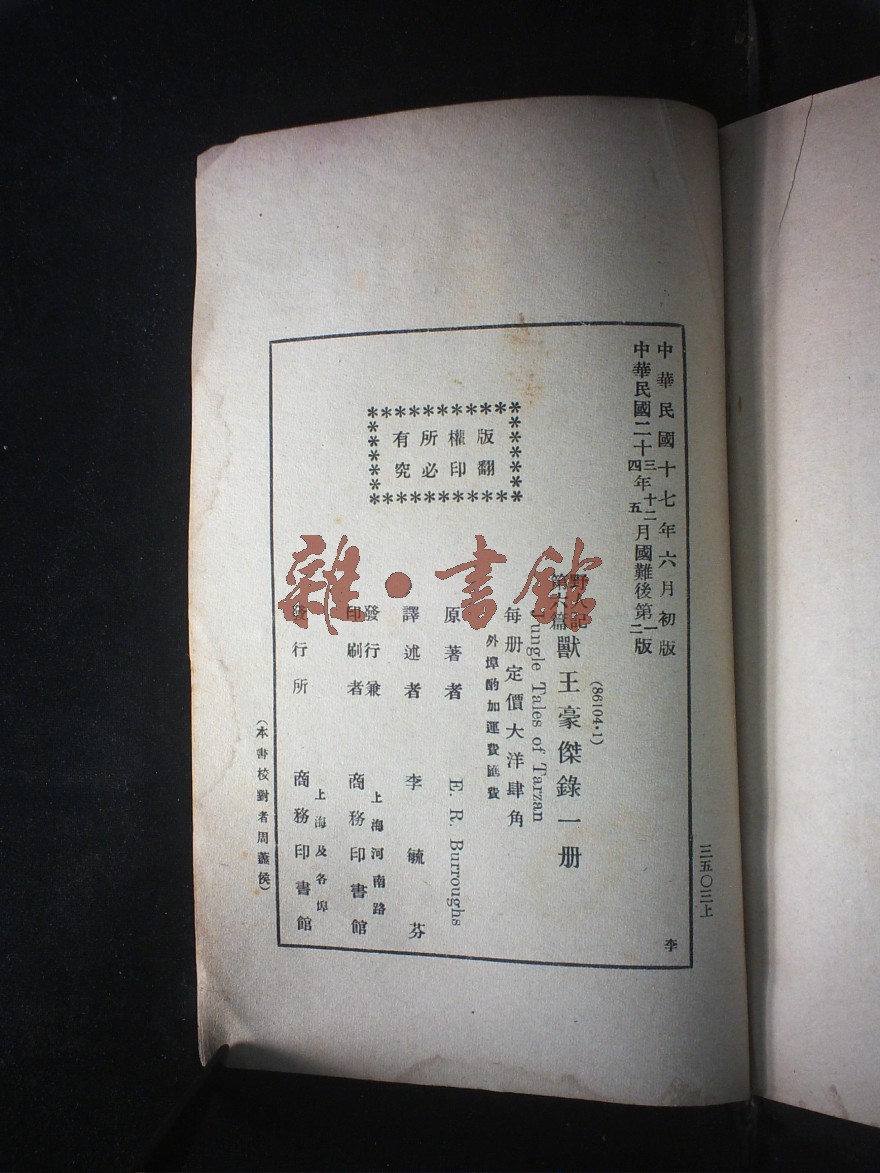 中華民國十七年六月初版
中華民國二十三年十二月國難後第一版
四 五 二
(86104·1)
野人記
第六篇
獸王豪傑錄一册
Jungle Tales of Tarzan
每册定價大洋肆角
外埠酌加運費匯費
原著者 E. R. Burroughs
譯述者 李毓芬
發行兼
印刷者
上海河南路
商務印書館
發行所
上海及各埠
商務印書館
版權所有
翻印必究
(本書校對者周藎侯)
三五〇三上
李
雜·書館